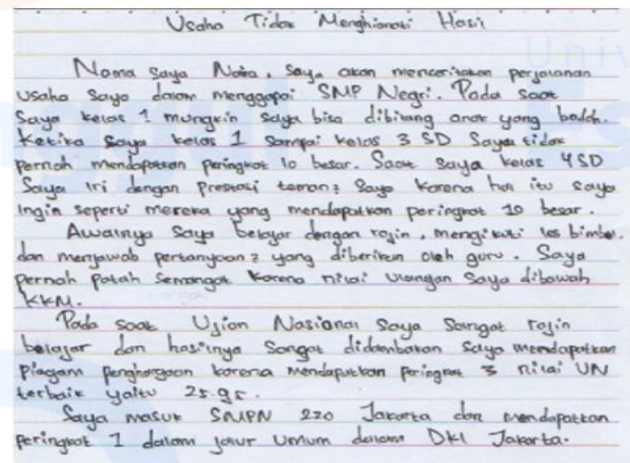 Usaha Tidak Menghianati Hasil
Nama saya Naira, saya akan menceritakan perjalanan
usaha saya dalam menggapai SMP Negri. Pada saat
saya kelas 1 mungkin saya bisa dibilang anak yang bodoh.
Ketika saya kelas 1 sampai kelas 3 SD saya tidak
pernah mendapatkan peringkat 10 besar. Saat saya kelas 4 SD
saya iri dengan prestasi teman2 saya karena hal itu saya
ingin seperti mereka yang mendapatkan peringkat 10 besar.
Awalnya saya belajar dengan rajin, mengikuti les bimbel.
dan menjawab pertanyaan2 yang diberikan oleh guru. Saya
pernah patah semangat karena nilai ulangan saya dibawah
KKM.
Pada saat Ujian Nasional saya sangat rajin
belajar dan hasilnya sangat didambakan saya mendapatkan
piagam penghargaan karena mendapatkan peringkat 3 nilai UN
terbaik yaitu 25.95.
Saya masuk SMPN 220 Jakarta dan mendapatkan
peringkat 1 dalam jalur umum dalam DKI Jakarta.